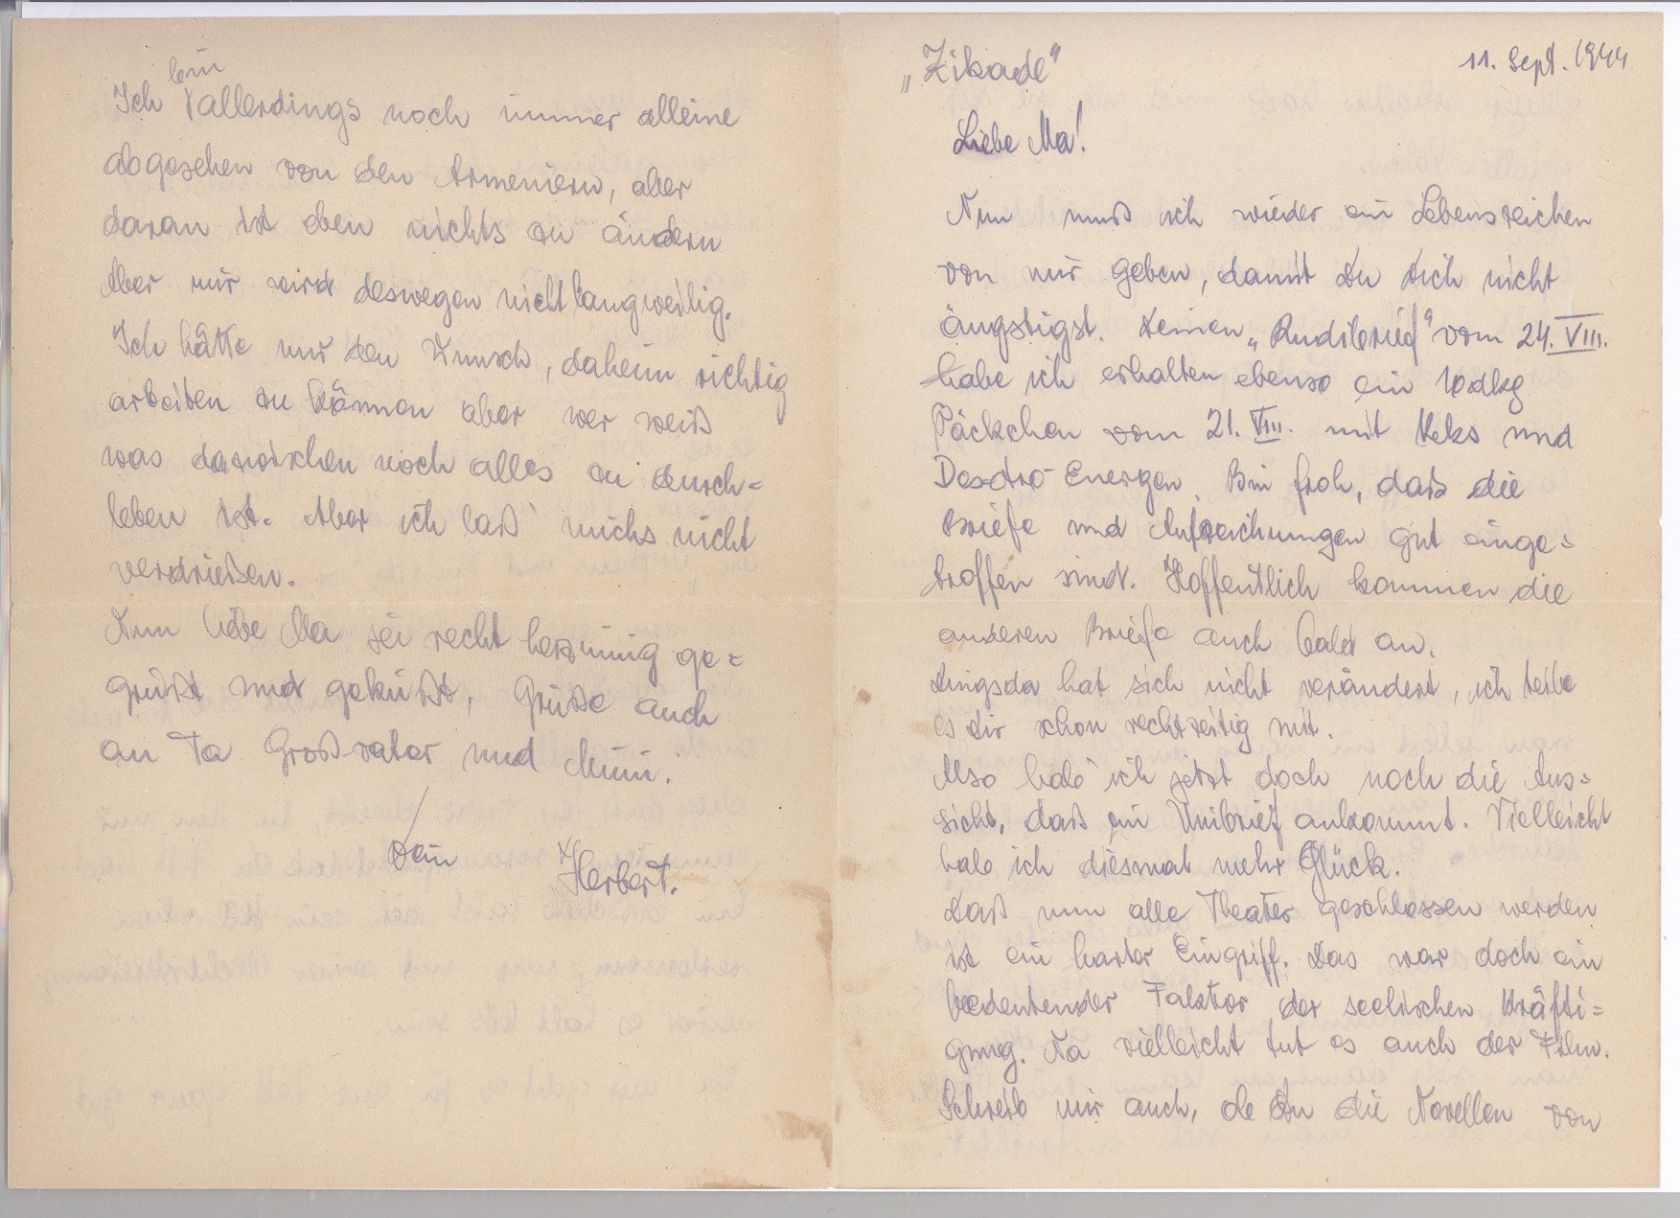 „Zikade“ 11. Sept. 1944
Liebe Ma!
Nun muß ich wieder ein Lebenszeichen
von mir geben, damit Du Dich nicht
ängstigst. Deinen „Rudibrief“ vom 24. VIII.
habe ich erhalten ebenso ein 10dkg
Päckchen vom 21. VIII. mit Keks und
Dextro-Energen. Bin froh, daß die
Briefe und Aufzeichnungen gut einge=
troffen sind. Hoffentlich kommen die
anderen Briefe auch bald an.
Dingsda hat sich nicht verändert, ich teile
es dir schon rechtzeitig mit.
Also hab' ich jetzt doch noch die Aus=
sicht, daß ein Unibrief ankommt. Vielleicht
habe ich diesmal mehr Glück.
Daß nun alle Theater geschlossen werden
ist ein harter Eingriff. Das war doch ein
bedeutender Faktor der seelischen Kräfti=
gung. Na vielleicht tut es auch der Film.
Schreib mir auch, ob Du die Novellen von
bin
Ich allerdings noch immer alleine
abgesehen von den Armeniern, aber
daran ist eben nichts zu ändern
Aber mir wird deswegen nicht langweilig.
Ich hätte nur den Wunsch, daheim richtig
arbeiten zu können aber wer weiß
was dazwischen noch alles zu durch=
leben ist. Aber ich laß' michs nicht
verdrießen.
Nun liebe Ma sei recht herzinnig ge=
grüßt und geküßt, Grüße auch
an Ta Großvater und Mimi.
Dein Herbert.